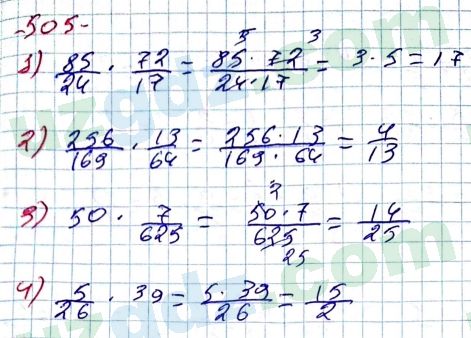 -505-
1) 85/24 · 72/17 = 85 · 72/24 · 17 = 3 · 5 = 17
5 3
2) 256/169 · 13/64 = 256 · 13/169 · 64 = 4/13
3) 50 · 7/625 = 50 · 7/625 = 14/25
2
25
4) 5/26 · 39 = 5 · 39/26 = 15/2